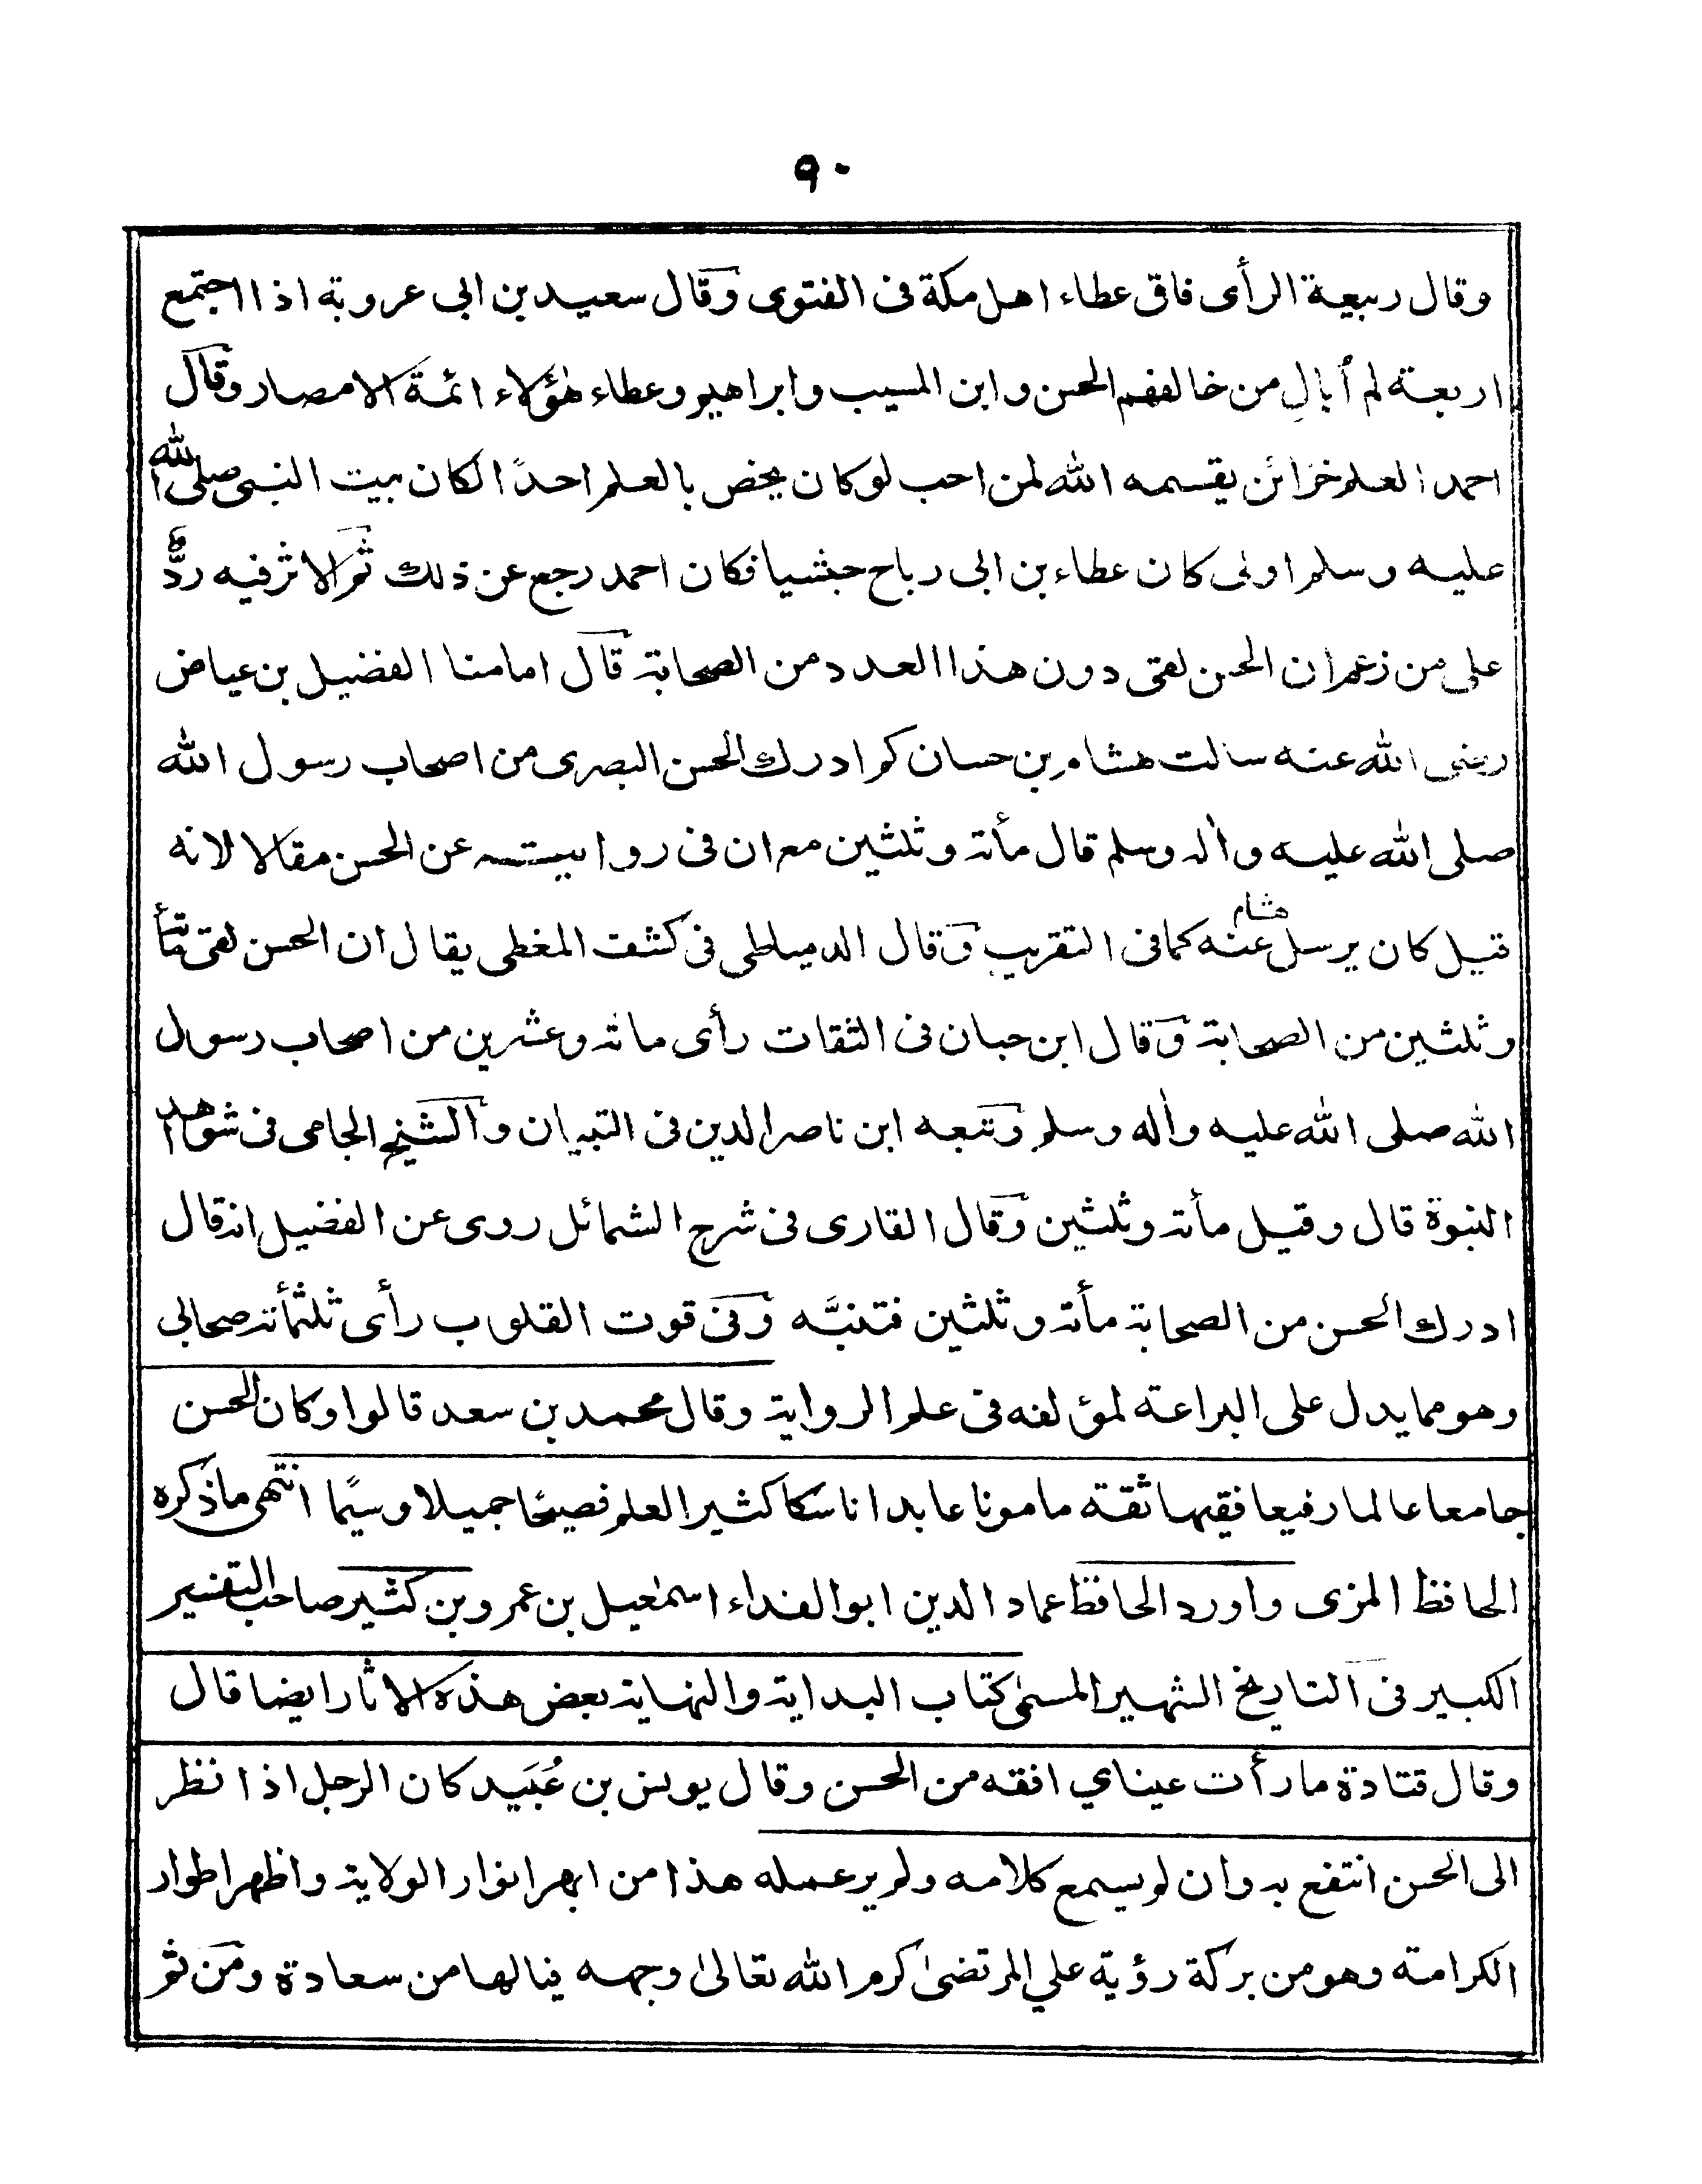 ٩٠
وقال ربيعة الرأى فاق عطاء اهل مكة فى الفتوى وقال سعيد بن ابى عروبة اذا اجتمع
اربعة لم أبالِ من خالفهم الحسن وابن المسيب وابراهيم وعطاء هٰؤلاء ائمة الامصار وقال
احمد العلم خزائن يقسمه الله لمن احب لو كان يخص بالعلم احدًا لكان بيت النبى صلى الله
عليه وسلم اولى كان عطاء بن ابى رباح حبشيا فكان احمد رجع عن ذلك ثم الاثر فيه ردٌّ
على من زعم ان الحسن لقى دون هذا العدد من الصحابة قال امامنا الفضيل بن عياض
رضى الله عنه سالت هشام بن حسان كم ادرك الحسن البصرى من اصحاب رسول الله
صلى الله عليه واٰله وسلم قال مأة وثلثين مع ان فى روايته عن الحسن مقالا لانه
قيل كان يرسل عنه هشام كما فى التقريب وقال الدمياطى فى كشف المغطى يقال ان الحسن لقى مأة
وثلثين من الصحابة وقال ابن حبان فى الثقات رأى مائة وعشرين من اصحاب رسول
الله صلى الله عليه واٰله وسلم وتبعه ابن ناصر الدين فى التبيان والشيخ الجامى فى شواهد
النبوة قال وقيل مأة وثلثين وقال القارى فى شرح الشمائل روى عن الفضيل انه قال
ادرك الحسن من الصحابة مأة وثلثين فتنبَّه وفى قوت القلوب رأى ثلثمأة صحابى
وهو مما يدل على البراعة لمؤلفه فى علم الرواية وقال محمد بن سعد قالوا وكان الحسن
جامعا عالما رفيعا فقيها ثقة مامونا عابدا ناسكا كثير العلم فصيحًا جميلا وسيمًا انتهى ما ذكره
الحافظ المزى واورد الحافظ عماد الدين ابو الفداء اسمٰعيل بن عمرو بن كثير صاحب التفسير
الكبير فى التاريخ الشهير المسمىٰ كتاب البداية والنهاية بعض هذه الاثار ايضا قال
وقال قتادة ما رأت عيناي افقه من الحسن وقال يونس بن عُبَيد كان الرجل اذا نظر
الى الحسن انتفع به وان لم يسمع كلامه ولم ير عمله هذا من ابهر انوار الولاية واظهر اطوار
الكرامة وهو من بركة رؤية علي المرتضىٰ كرم الله تعالىٰ وجهه فيالها من سعادة ومن ثم